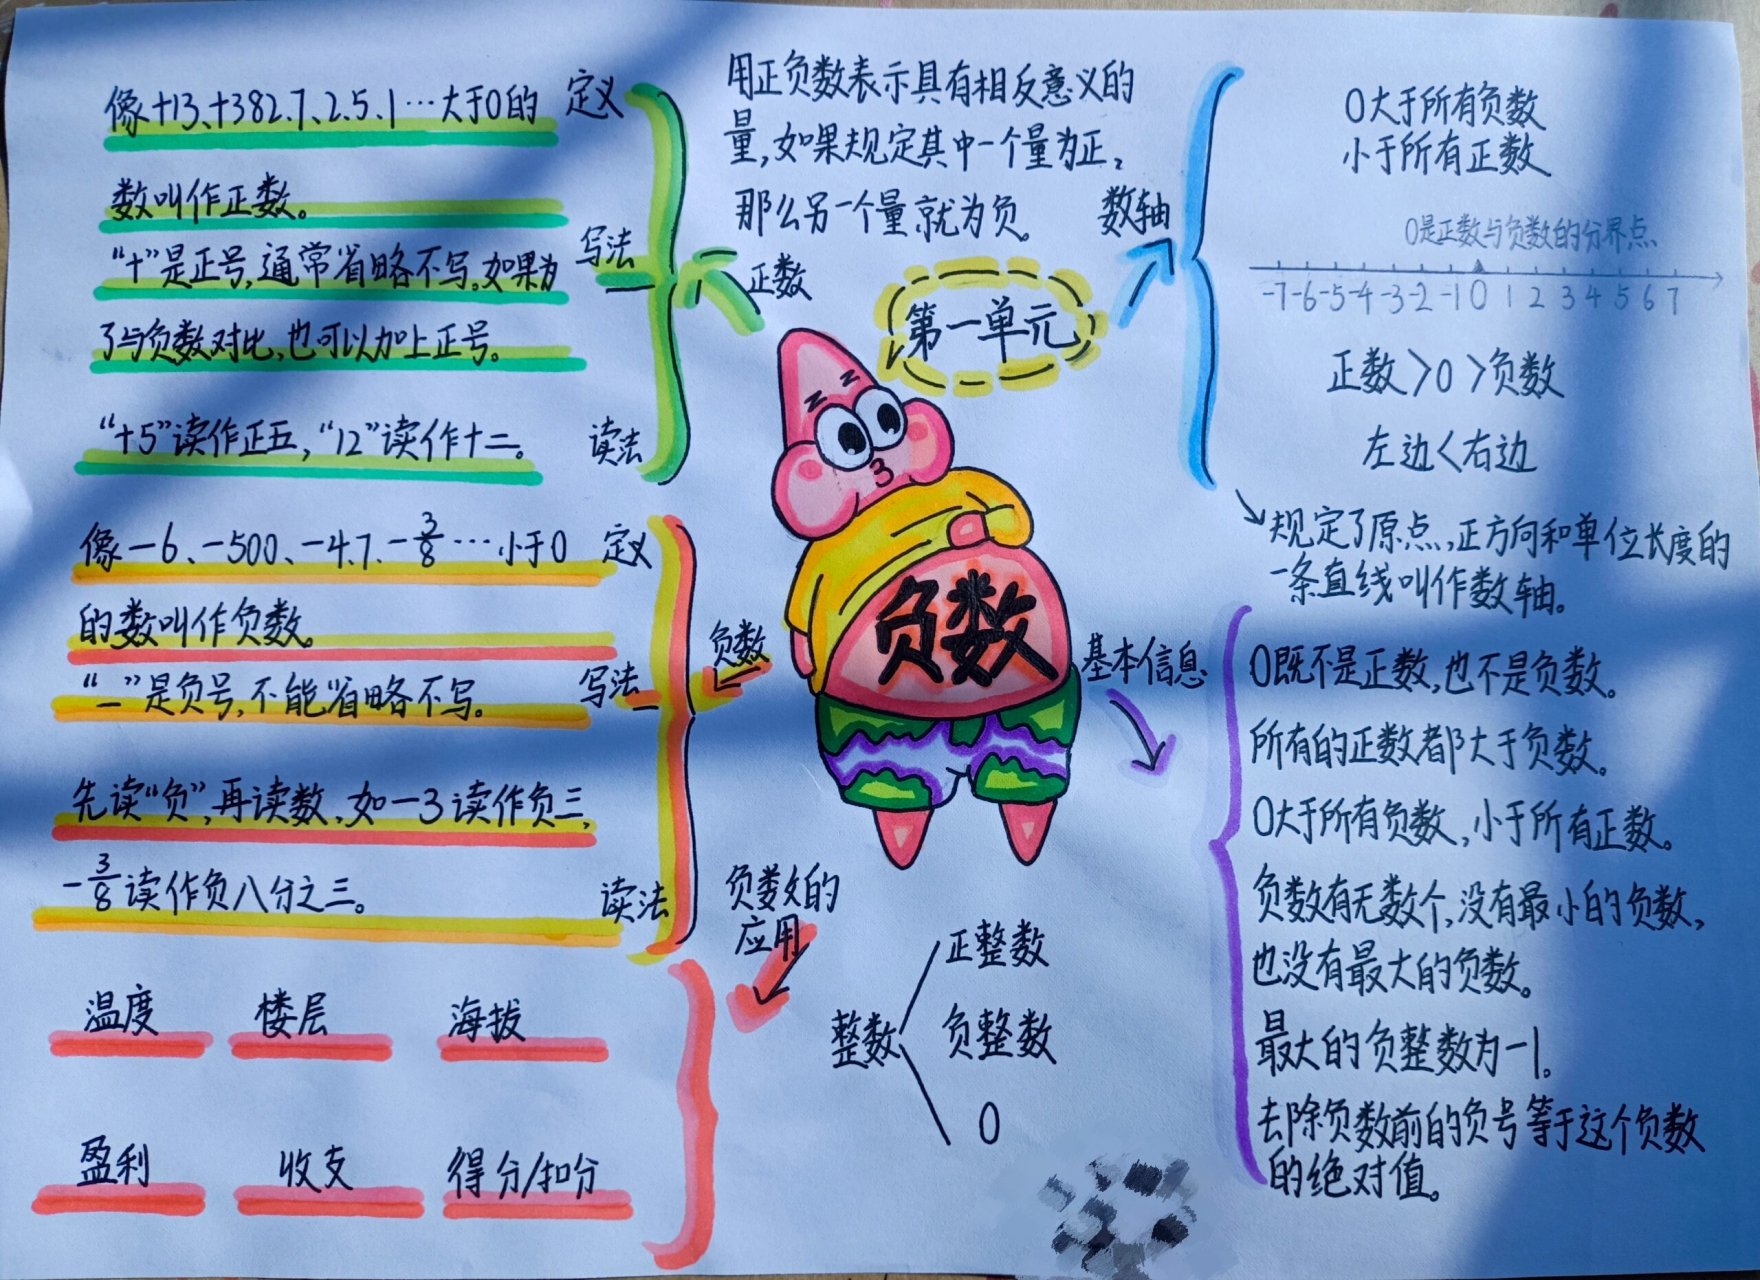 像+13、+382.7、2.5.1…大于0的 定义
数叫作正数。
“+”是正号,通常省略不写。如果为 写法
了与负数对比,也可以加上正号。
“+5”读作正五,“12”读作十二。 读法
正数
像-6、-500、-4.7、-3/8…小于0 定义
的数叫作负数。
“-”是负号,不能省略不写。 写法
先读“负”,再读数,如-3读作负三,
-3/8读作负八分之三。 读法
负数
负数的
应用
温度 楼层 海拔
盈利 收支 得分/扣分
用正负数表示具有相反意义的
量,如果规定其中一个量为正,
那么另一个量就为负。
第一单元
负数
整数
正整数
负整数
0
数轴
0大于所有负数
小于所有正数
0是正数与负数的分界点
-7-6-5-4-3-2-1 0 1 2 3 4 5 6 7
正数>0>负数
左边<右边
规定了原点,正方向和单位长度的
一条直线叫作数轴。
基本信息
0既不是正数,也不是负数。
所有的正数都大于负数。
0大于所有负数,小于所有正数。
负数有无数个,没有最小的负数,
也没有最大的负数。
最大的负整数为-1。
去除负数前的负号等于这个负数
的绝对值。